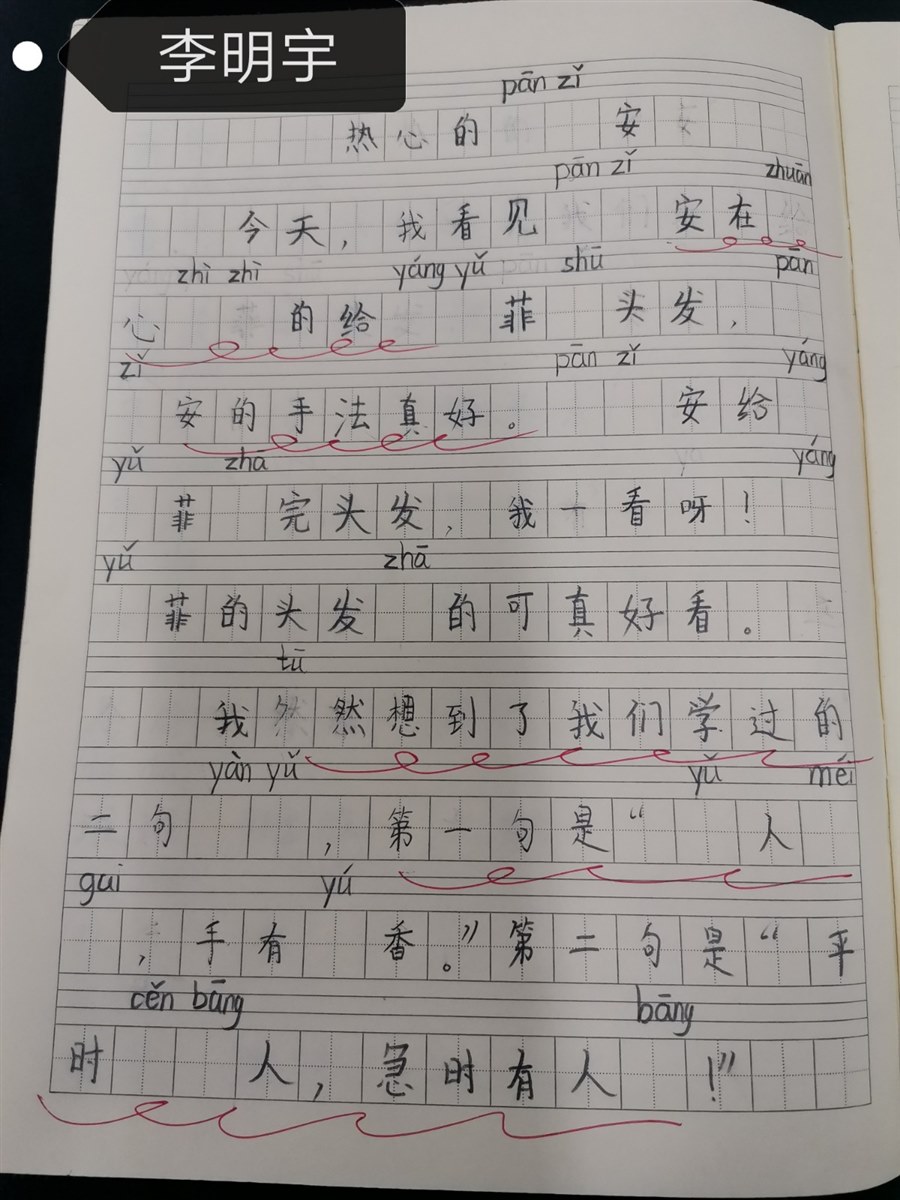 李明宇
pān zǐ
热心的 安
pān zǐ zhuān
今天，我看见 安在
zhì zhì yáng yǔ shū pān
心 的给 菲 头发，
zǐ pān zǐ yáng
安的手法真好。 安给
yǔ zhā yáng
菲 完头发，我一看呀！
yǔ zhā
菲的头发 的可真好看。
tū
我 然想到了我们学过的
yàn yǔ yǔ méi
二句 ，第一句是“ 人
gui yú
，手有 香。”第二句是“平
cěn bāng bāng
时 人，急时有人 ！”